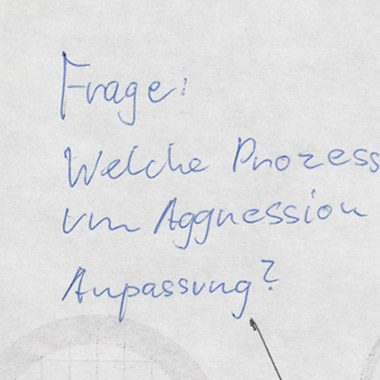 Frage:
Welche Prozess
um Aggression
Anpassung?